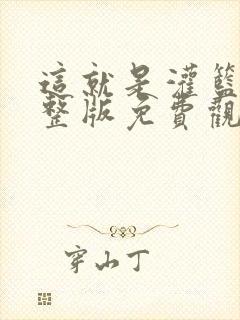 這就是灌籃
整版免費觀
穿山丁